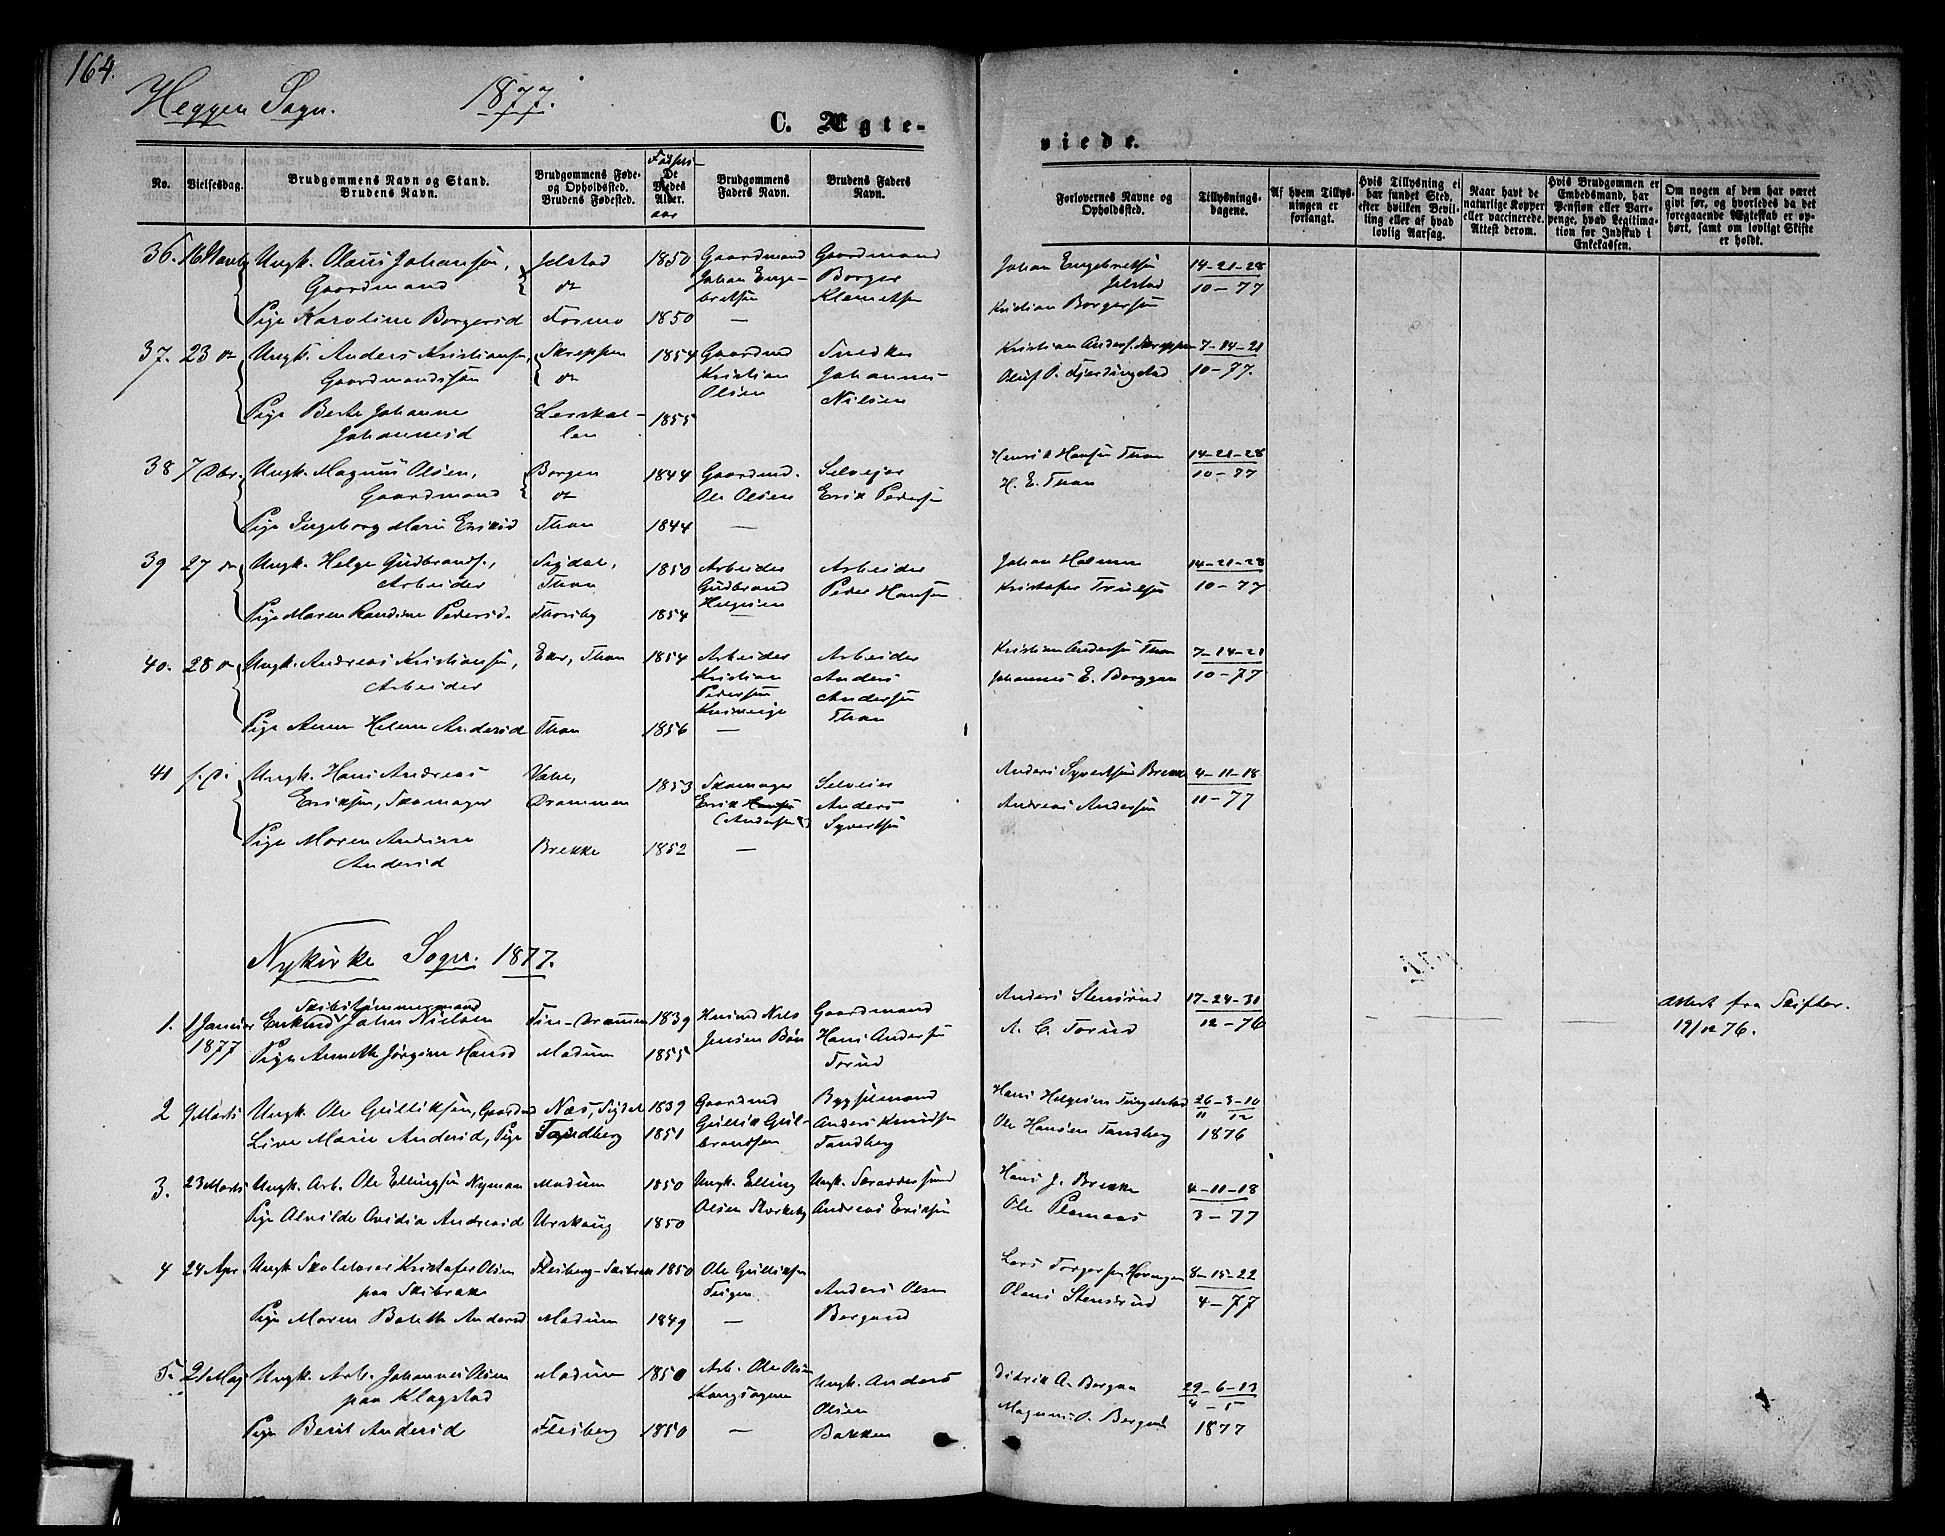 164.
Heggen Sogn. 1877.
C. Ægte-
viede.
No.
Vielsesdag.
Brudgommens Navn og Stand.
Brudens Navn.
Brudgommens Føde-
og Opholdssted.
Brudens Fødested.
Fødsels-
De
Viedes
Alder.
aar
Brudgommens
Faders Navn.
Brudens Faders
Navn.
Forlovernes Navne og
Opholdssted.
Tillysnings-
dagene.
Af hvem Tillys-
ningen er
forlangt.
Hvis Tillysning ei
har fundet Sted,
efter hvilken Bevil-
ling eller af hvad
lovlig Aarsag.
Naar havt de
naturlige Kopper
eller vaccinerede.
Attest derom.
Hvis Brudgommen er
Embedsmand, har
Pension eller Vart-
penge, hvad Legitima-
tion for Indskud i
Enkekassen.
Om nogen af dem har været
gift før, og hvorledes da det
foregaaende Ægteskab er op-
hørt, samt om lovligt Skifte
er holdt.
36. 16 Novbr Ungk. Olaus Johansen, Jelstad 1850 Gaardmand Gaardmand Johan Engebretsen 14-21-28
Gaardmand do Johan Enge- Borger Jelstad 10-77
bretsen Klemetsen Kristian Borgersen
Pige Karoline Borgersd Fosmo 1850 —
37. 23 do Ungk. Anders Kristiansen, Skreppen 1854 Gaardmd Snedker Kristian Anders. Skreppen 7-14-21
Gaardmandssøn do Kristian Johannes Oluf P. Fjerdingstad 10-77.
Olsen Nilsen
Pige Berte Johanne Lerskal- 1855
Johannesd len
38 7 Dbr. Ungk. Magnus Olsen, Borgen 1844 Gaardmd. Selveier Henrik Hansen Thon 14-21-28
Gaardmand do Ole Olsen Erik Pedersen H. E. Thon 10-77
Pige Ingeborg Marie Eriksd Thon 1844 —
39 27 do Ungk. Helge Gudbrands., Sigdal, 1850 Arbeider Arbeider Johan Holmen 14-21-28
Arbeider Thon Gudbrand Peder Hansen Kristofer Truelsen 10-77
Helgesen
Pige Maren Randine Pedersd. Thorsby 1854 —
40. 28 do Ungk. Andreas Kristiansen, Eker, Thon 1854 Arbeider Arbeider Kristian Andersen Thon 7-14-21
Arbeider Kristian Anders Johannes E. 10-77
Pedersen Andersen
Thon
Pige Anne Helene Andersd Thon 1856 —
41 s.d. Ungk. Hans Andreas 1853 Skomager Selveier Anders Syvertsen Brekke 4-11-18
Eriksen, Skomager Drammen Erik Hansen Anders Andreas Andersen 11-77
(Andersen) Syvertsen
Pige Maren Andrine Brekke 1852 —
Andersd
Nykirke Sogn. 1877.
Skibstømmermand
1. 1 Januar Enkmd John Nielsen 1839 Husmd Nils Gaardmand Anders Stensrud 17-24-31 Attest fra Skifter.
1877 Jensen Bøn Hans Andersen A. C. Torud 12-76 19/12 76.
Pige Annethe Jørgine Hansd Modum 1855 Torud
2 9 Marts Ungk. Ole Gulliksen, Gaardmd Næs, Sigdal 1839 Gaardmd Bygselmand Hans Helgesen Tingelstad 26-3-10
Line Marie Andersd, Pige Tandberg 1851 Gullik Gul- Anders Knudsen Ole Hansen Tandberg 11 12
brandsen Tandberg 1876
3. 23 Marts Ungk. Arb. Ole Ellingsen Nyman Modum 1850 Ungk. Elling Ungk. Hans J. Brekke 4-11-18
Pige Alvilde Ovidia Andreasd Urskoug 1850 Olsen Andreas Eriksen Ole 3-77
4 24 Apr. Ungk Skolelærer Kristofer Olsen Flesberg-Skibrek 1850 Ole Gulliksen Lars Torgersen 8-15-22
paa Skibrek Teigen Anders Olsen Olaus Stensrud 4-77
Pige Maren Bolethe Andersd Modum 1849 — Borgund
5. 21 Maj Ungk. Arb. Johannes Olsen Modum 1850 Arb. Ole Olsen Ungk. Anders Didrik A. Bergan 29-6-13
paa Klagstad Kongsagene Olsen Magnus O. Bergan 4-5
Pige Berit Andersd Flesberg 1850 — Bakken 1877